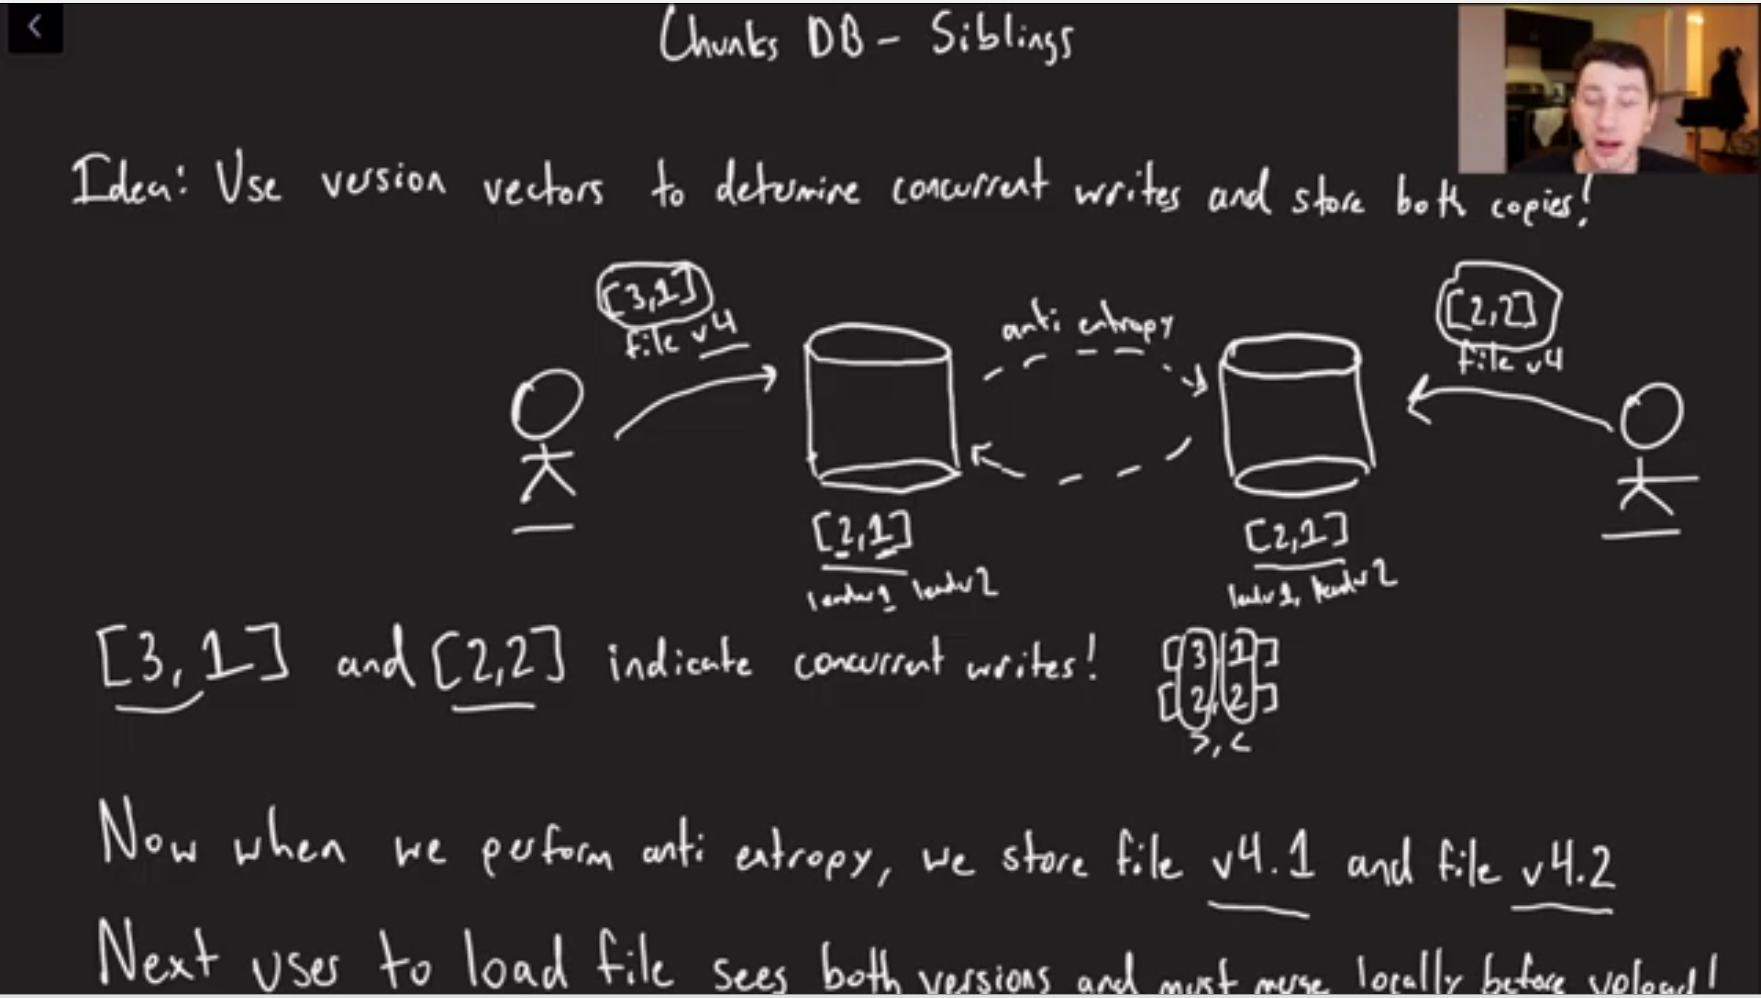 Chunks DB - Siblings
Idea: Use version vectors to determine concurrent writes and store both copies!
[3,1]
file v4
anti entropy
[2,2]
file v4
[2,1]
leader1 leader2
[2,1]
leader1, leader2
[3,1] and [2,2] indicate concurrent writes!
[3,1]
[2,2]
>, <
Now when we perform anti entropy, we store file v4.1 and file v4.2
Next user to load file sees both versions and must merge locally before upload!